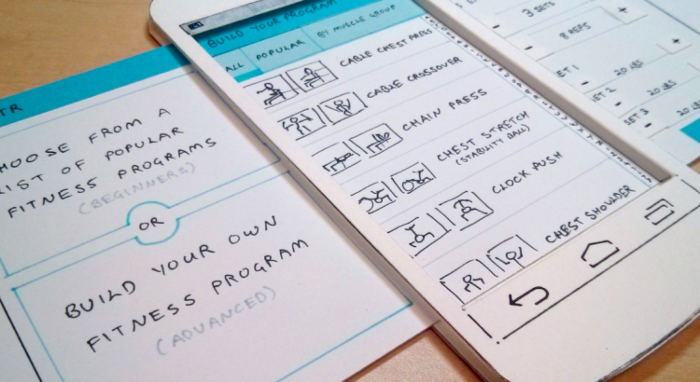 TR
CHOOSE FROM A
LIST OF POPULAR
FITNESS PROGRAMS
(BEGINNERS)
OR
BUILD YOUR OWN
FITNESS PROGRAM
(ADVANCED)
BUILD YOUR PROGRAM
ALL
POPULAR
BY MUSCLE GROUP
CABLE CHEST PRESS
CABLE CROSSOVER
CHAIN PRESS
CHEST STRETCH
(STABILITY BALL)
CLOCK PUSH
CHEST SHOULDER
- 3 SETS
- 8 REPS +
SET 1 - 20 LBS
SET 2 - 20 LBS +
SET 3 - 20 LBS